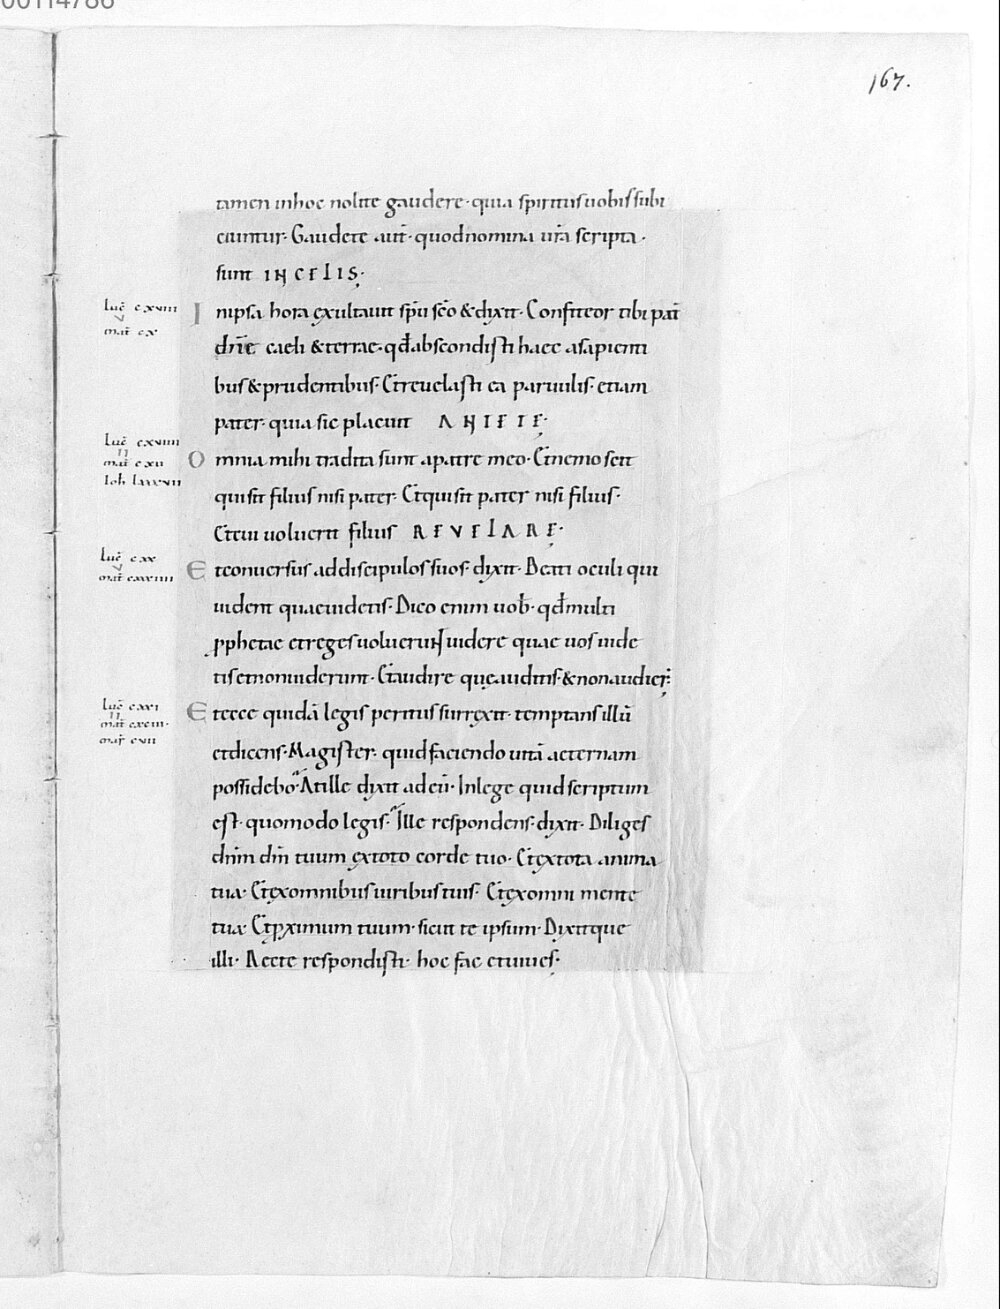 00114786
167.
tamen inhoc nolite gaudere· quia spiritus uobis subi
ciuntur· Gaudete aut̄· quod nomina ur̄a scripta·
sunt IN CELIS·
Luc̄ cxviiii
V
mat̄ cx
I nipsa hora exultauit sp̄u sc̄o & dixit· Confiteor tibi pat̄
dn̄e caeli & terrae· qd̄ abscondisti haec asapienti
bus & prudentibus· Et reuelasti ea paruulis· etiam
pater· quia sic placuit ANTETE·
Luc̄ cxviiii
II
mat̄ cxii
Ioh lxxxvii
O mnia mihi tradita sunt apatre meo· Et nemo scit
qui sit filius nisi pater· Et quis sit pater nisi filius·
Et cui uoluerit filius REVELARE·
Luc̄ cxx
V
mat̄ cxxxiiii
E t conuersus ad discipulos suos· dixit· Beati oculi qui
uident quae uidetis· Dico enim uob̄· qd̄ multi
pphetae et reges uoluerunt uidere quae uos uide
tis et non uiderunt· Et audire quę auditis· & non audier̄·
Luc̄ cxxi
II
mat̄ cxciii·
mar̄ cvii
E t ecce quidā legis peritus surrexit· temptans illū
et dicens· Magister· quid faciendo uitā aeternam
possidebo· At ille dixit ad eū· In lege quid scriptum
est· quomodo legis· Ille respondens· dixit· Diliges
dn̄m dm̄ tuum ex toto corde tuo· Et ex tota anima
tua· Et ex omnibus uiribus tuis· Et ex omni mente
tua· Et pximum tuum· sicut te ipsum· Dixitque
illi· Recte respondisti· hoc fac et uiues·